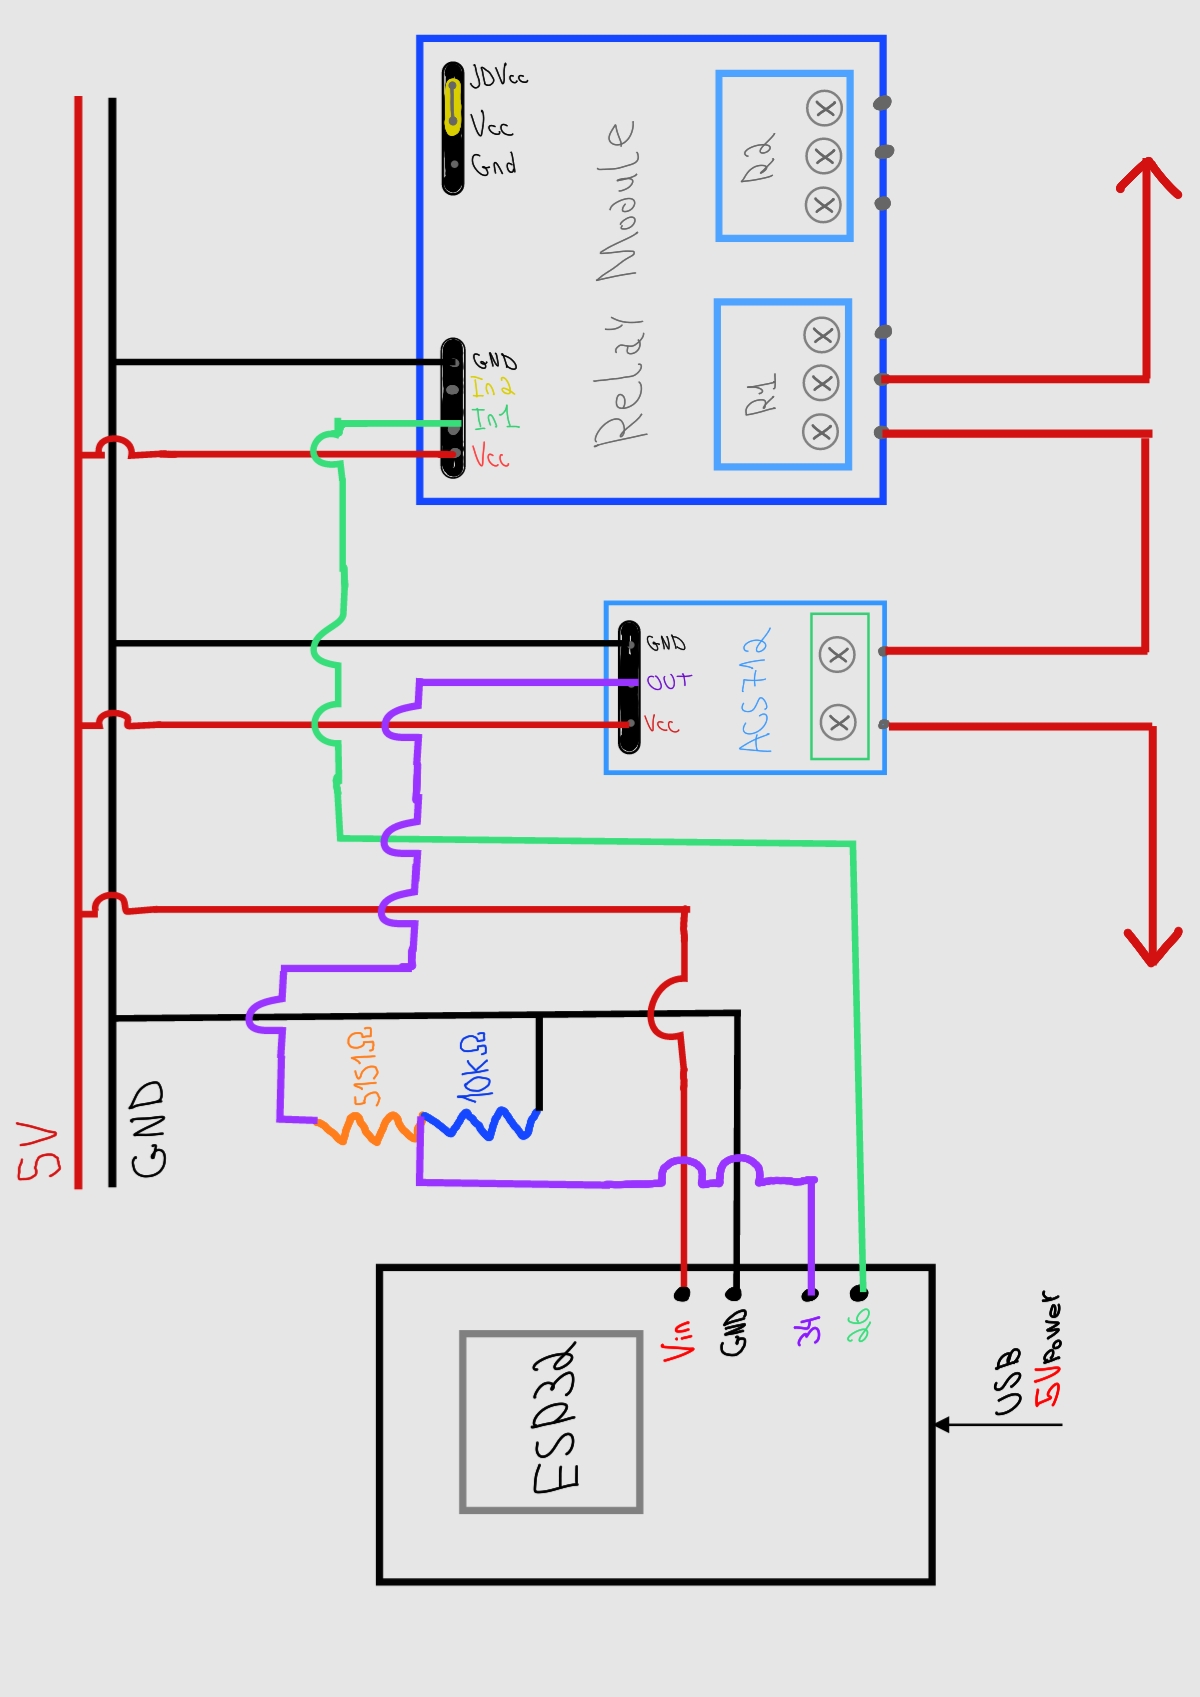 5V
GND
5151Ω
10kΩ
ESP32
Vin
GND
34
26
USB
5V Power
Vcc
OUT
GND
ACS712
Vcc
In1
In2
GND
Gnd
Vcc
JDVcc
Relay Module
R1
R2